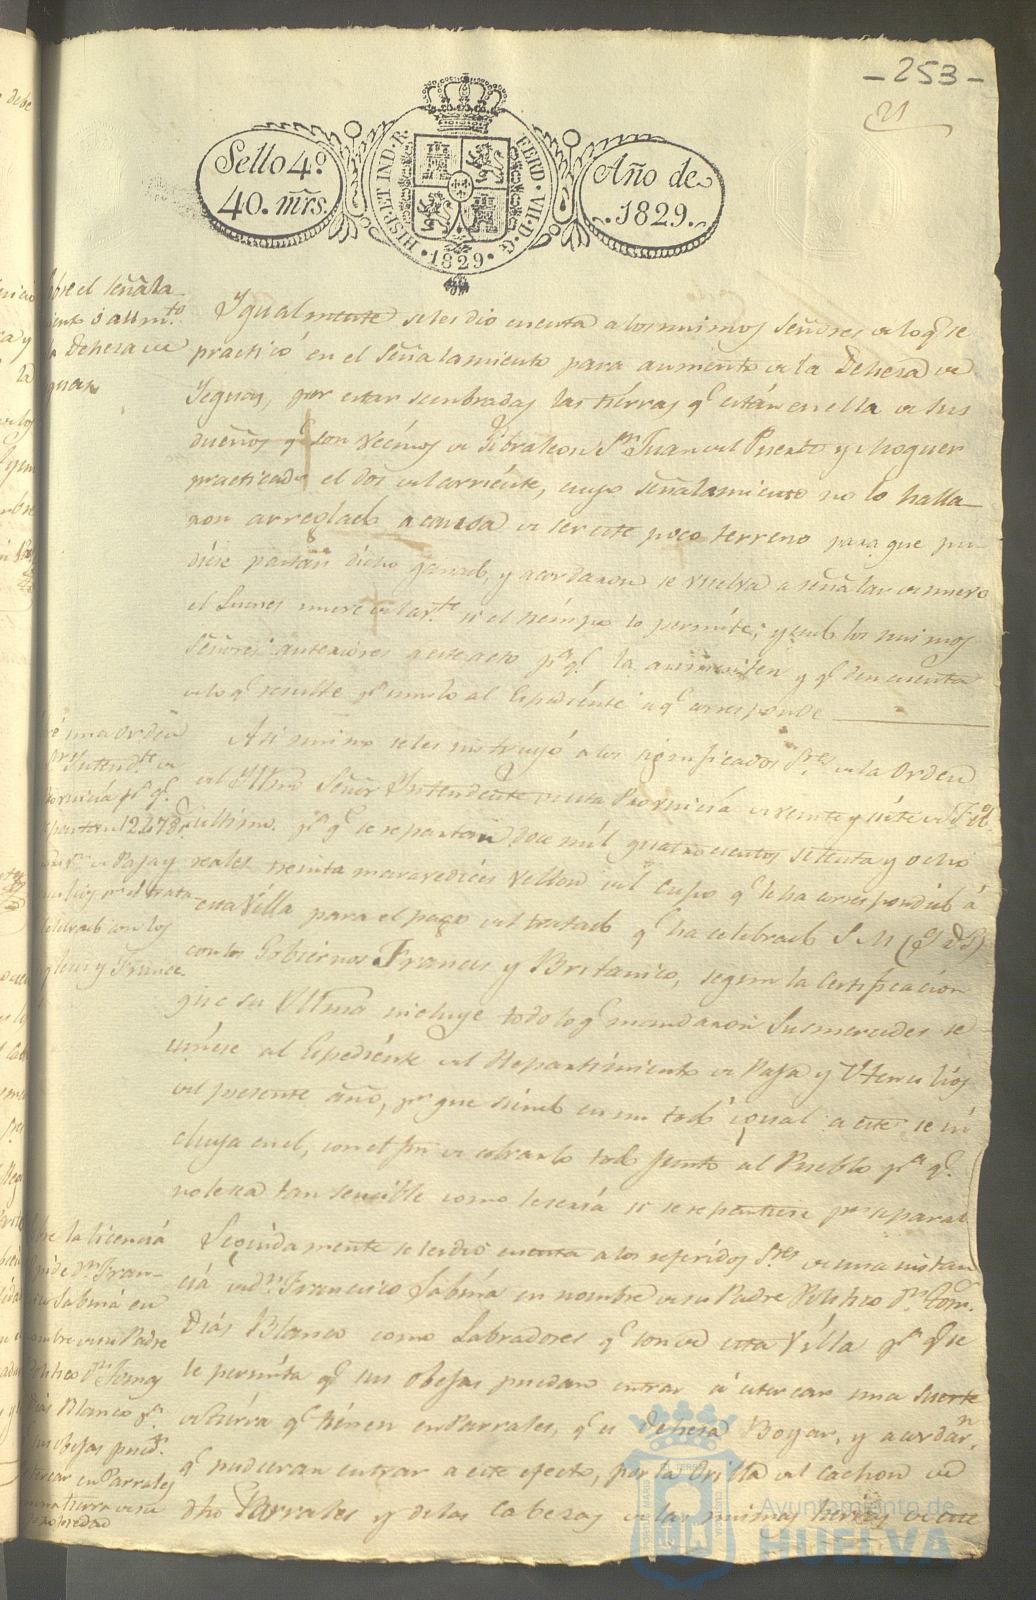 -253-
21
Sello 4º
40. mrs.
HISP. ET IND. R.
FERD. VII. D. G.
1829
Año de
1829.
sobre el señala
iento ó aumto
la Dehesa de
yeguas
Ygualmente se les dio cuenta a los mismos Señores de lo q se
practicó en el Señalamiento para aumento de la Dehesa de
Yeguas, por estar sembradas las tierras q están en ella de sus
dueños q son vecinos de Gibraleon Sn Juan del Puerto y Moguer
practicado el dos del corriente, cuyo señalamiento no lo halla
ron arreglado a causa de ser este poco terreno para que pu
diese pastar dicho ganado, y acordaron se vuelva a señalar de nuevo
el Lunes nueve del corte si el tiempo lo permite; yendo los mismos
Señores anteriores a este acto pa q la aumenten y q den cuenta
de lo q resulte pa unirlo al Expediente a q corresponde
una orden
Yntendte de
Provincia pa q
repartan 12478
de Paja y
el trata
celebrado con los
Yngleses y France
Asimismo se les instruyó a los significados Sres de la Orden
del Yltmo Señor Yntendente de esta Provincia de veinte y siete de
último pa q se repartan doce mil quatrocientos setenta y ocho
reales treinta maravedices vellon del cupo q le ha correspondido á
esta Villa para el pago del tratado q ha celebrado S M (q D g)
con los Gobiernos Frances y Britanico, segun la Certificación
que su Yltma incluye todo lo q mandaron Sus mercedes se
uniese al Expediente del Repartimiento de Paja y Utencilios
del presente año, pa que siendo en un todo igual a este se in
cluya en el, con el fin de cobrarlo todo junto al Pueblo pa q
no le sea tan sencible como le sería si se repartiese por separado
la licencia
pide Dn Fran
Sabina en
nombre de su Padre
Politico Dn Tomas
Dias Blanco pa
sus obejas
estercar en Parrales
una tierra de su
propiedad
Seguidamente se les dio cuenta a los referidos Sres de una instan
cia de Dn Francisco Sabina en nombre de su Padre Politico Dn Tom.
Dias Blanco como Labradores q son de esta Villa pa q se
le permita q sus obejas puedan entrar á estercar una suerte
de tierra q tienen en Parrales, q es dehesa Boyar, y acordarn
q pudieran entrar a este efecto, por la Orilla del cachon de
dho Parrales y de las cabezas de las mismas tierras de este
PORTUS MARIS ET TERRAE CUSTODIA
Ayuntamiento de
HUELVA